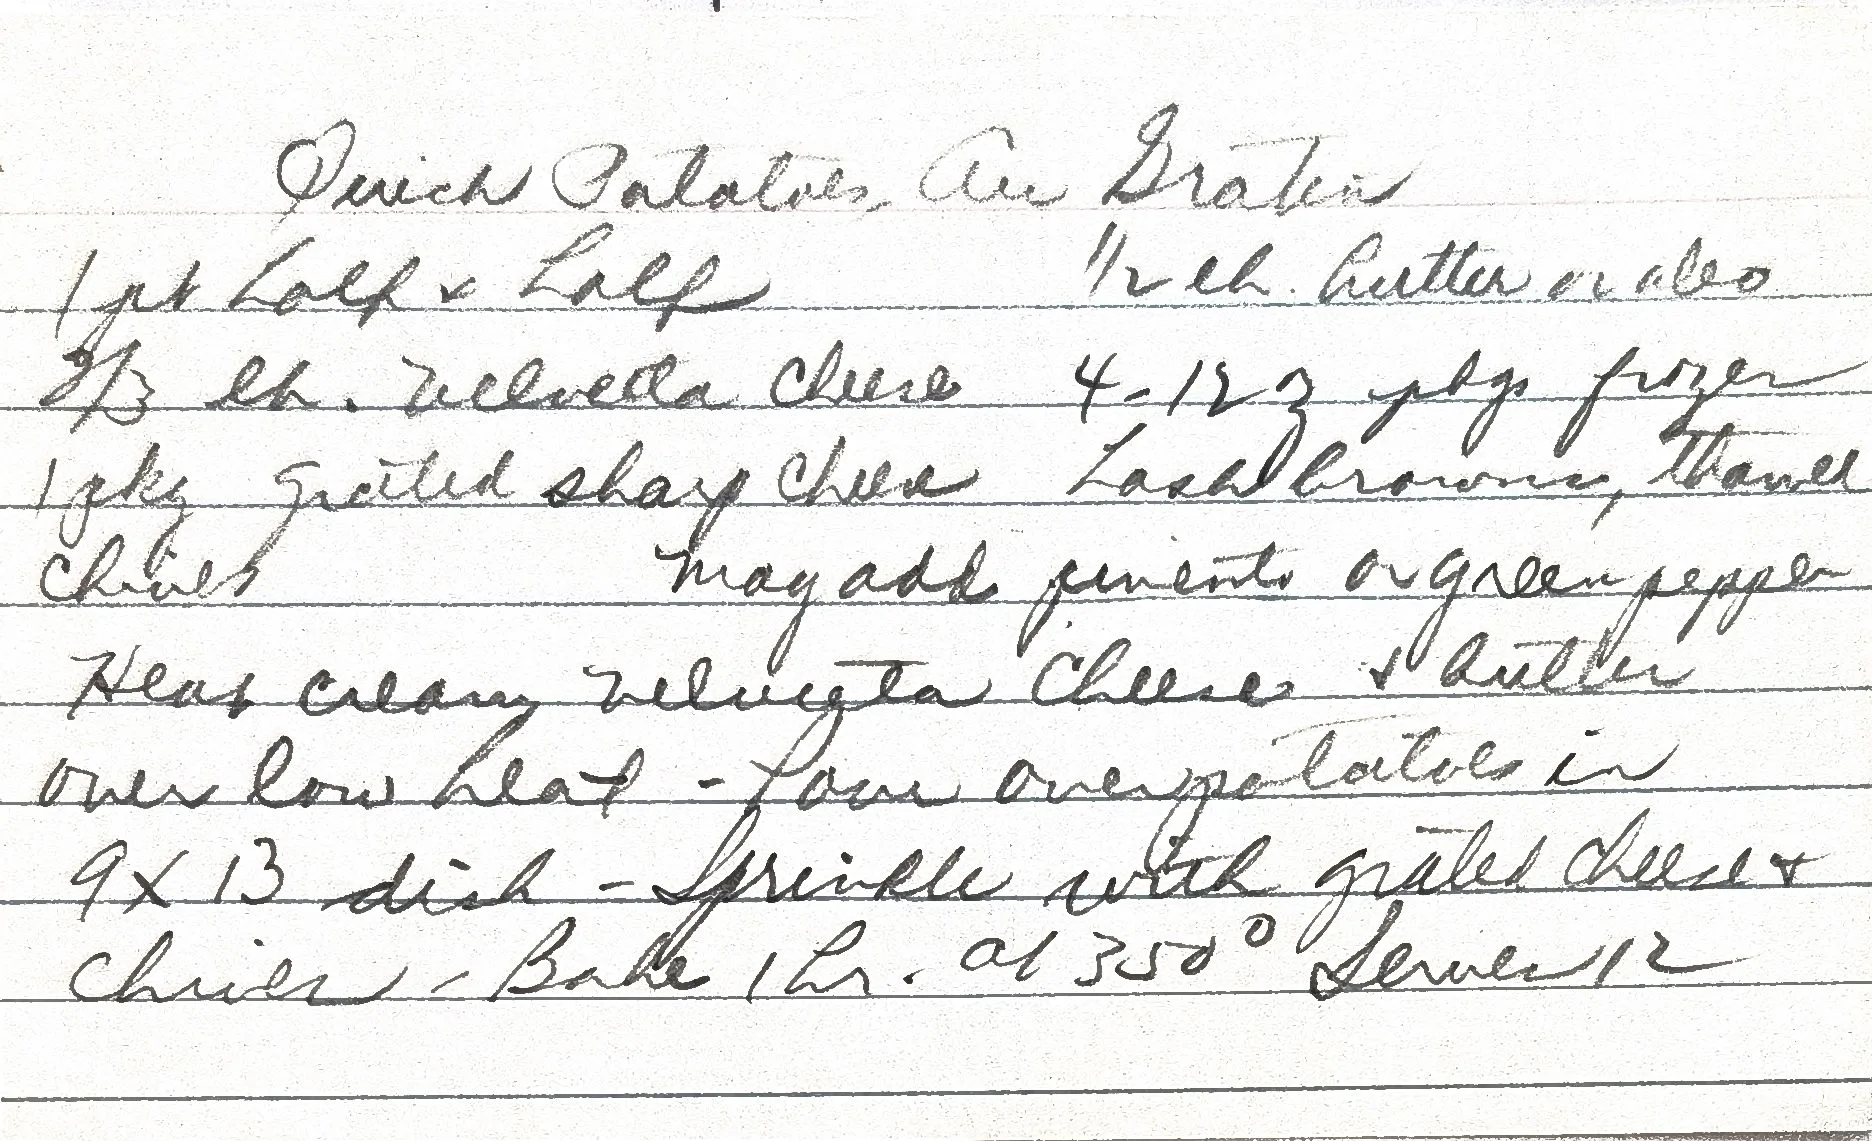 Quick Potatoes Au Gratin
1 pt half & half 1/2 lb. butter or oleo
2/3 lb. Velveeta Cheese 4-12 oz pkgs frozen
1 pkg grated sharp cheese hash browns, thawed
Chives may add pimento or green pepper
Heat cream, Velveeta Cheese & butter
over low heat - Pour over potatoes in
9 x 13 dish - Sprinkle with grated cheese &
Chives - Bake 1 hr. at 350° Serves 12